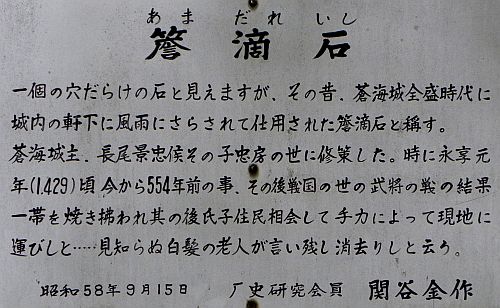 あま だれ いし
簷滴石
一個の穴だらけの石と見えますが、その昔、蒼海城全盛時代に
城内の軒下に風雨にさらされて仕用された簷滴石と称す。
蒼海城主、長尾景忠候その子忠房の世に修策した。時に永享元
年(1,429)頃 今から554年前の事、その後戦国の世の武将の戦の結果
一帯を焼き拂われ其の後氏子住民相会して手力によって現地に
運びしと……見知らぬ白髪の老人が言い残し消去りしと云う。
昭和58年9月15日 厂史研究会員 関谷金作